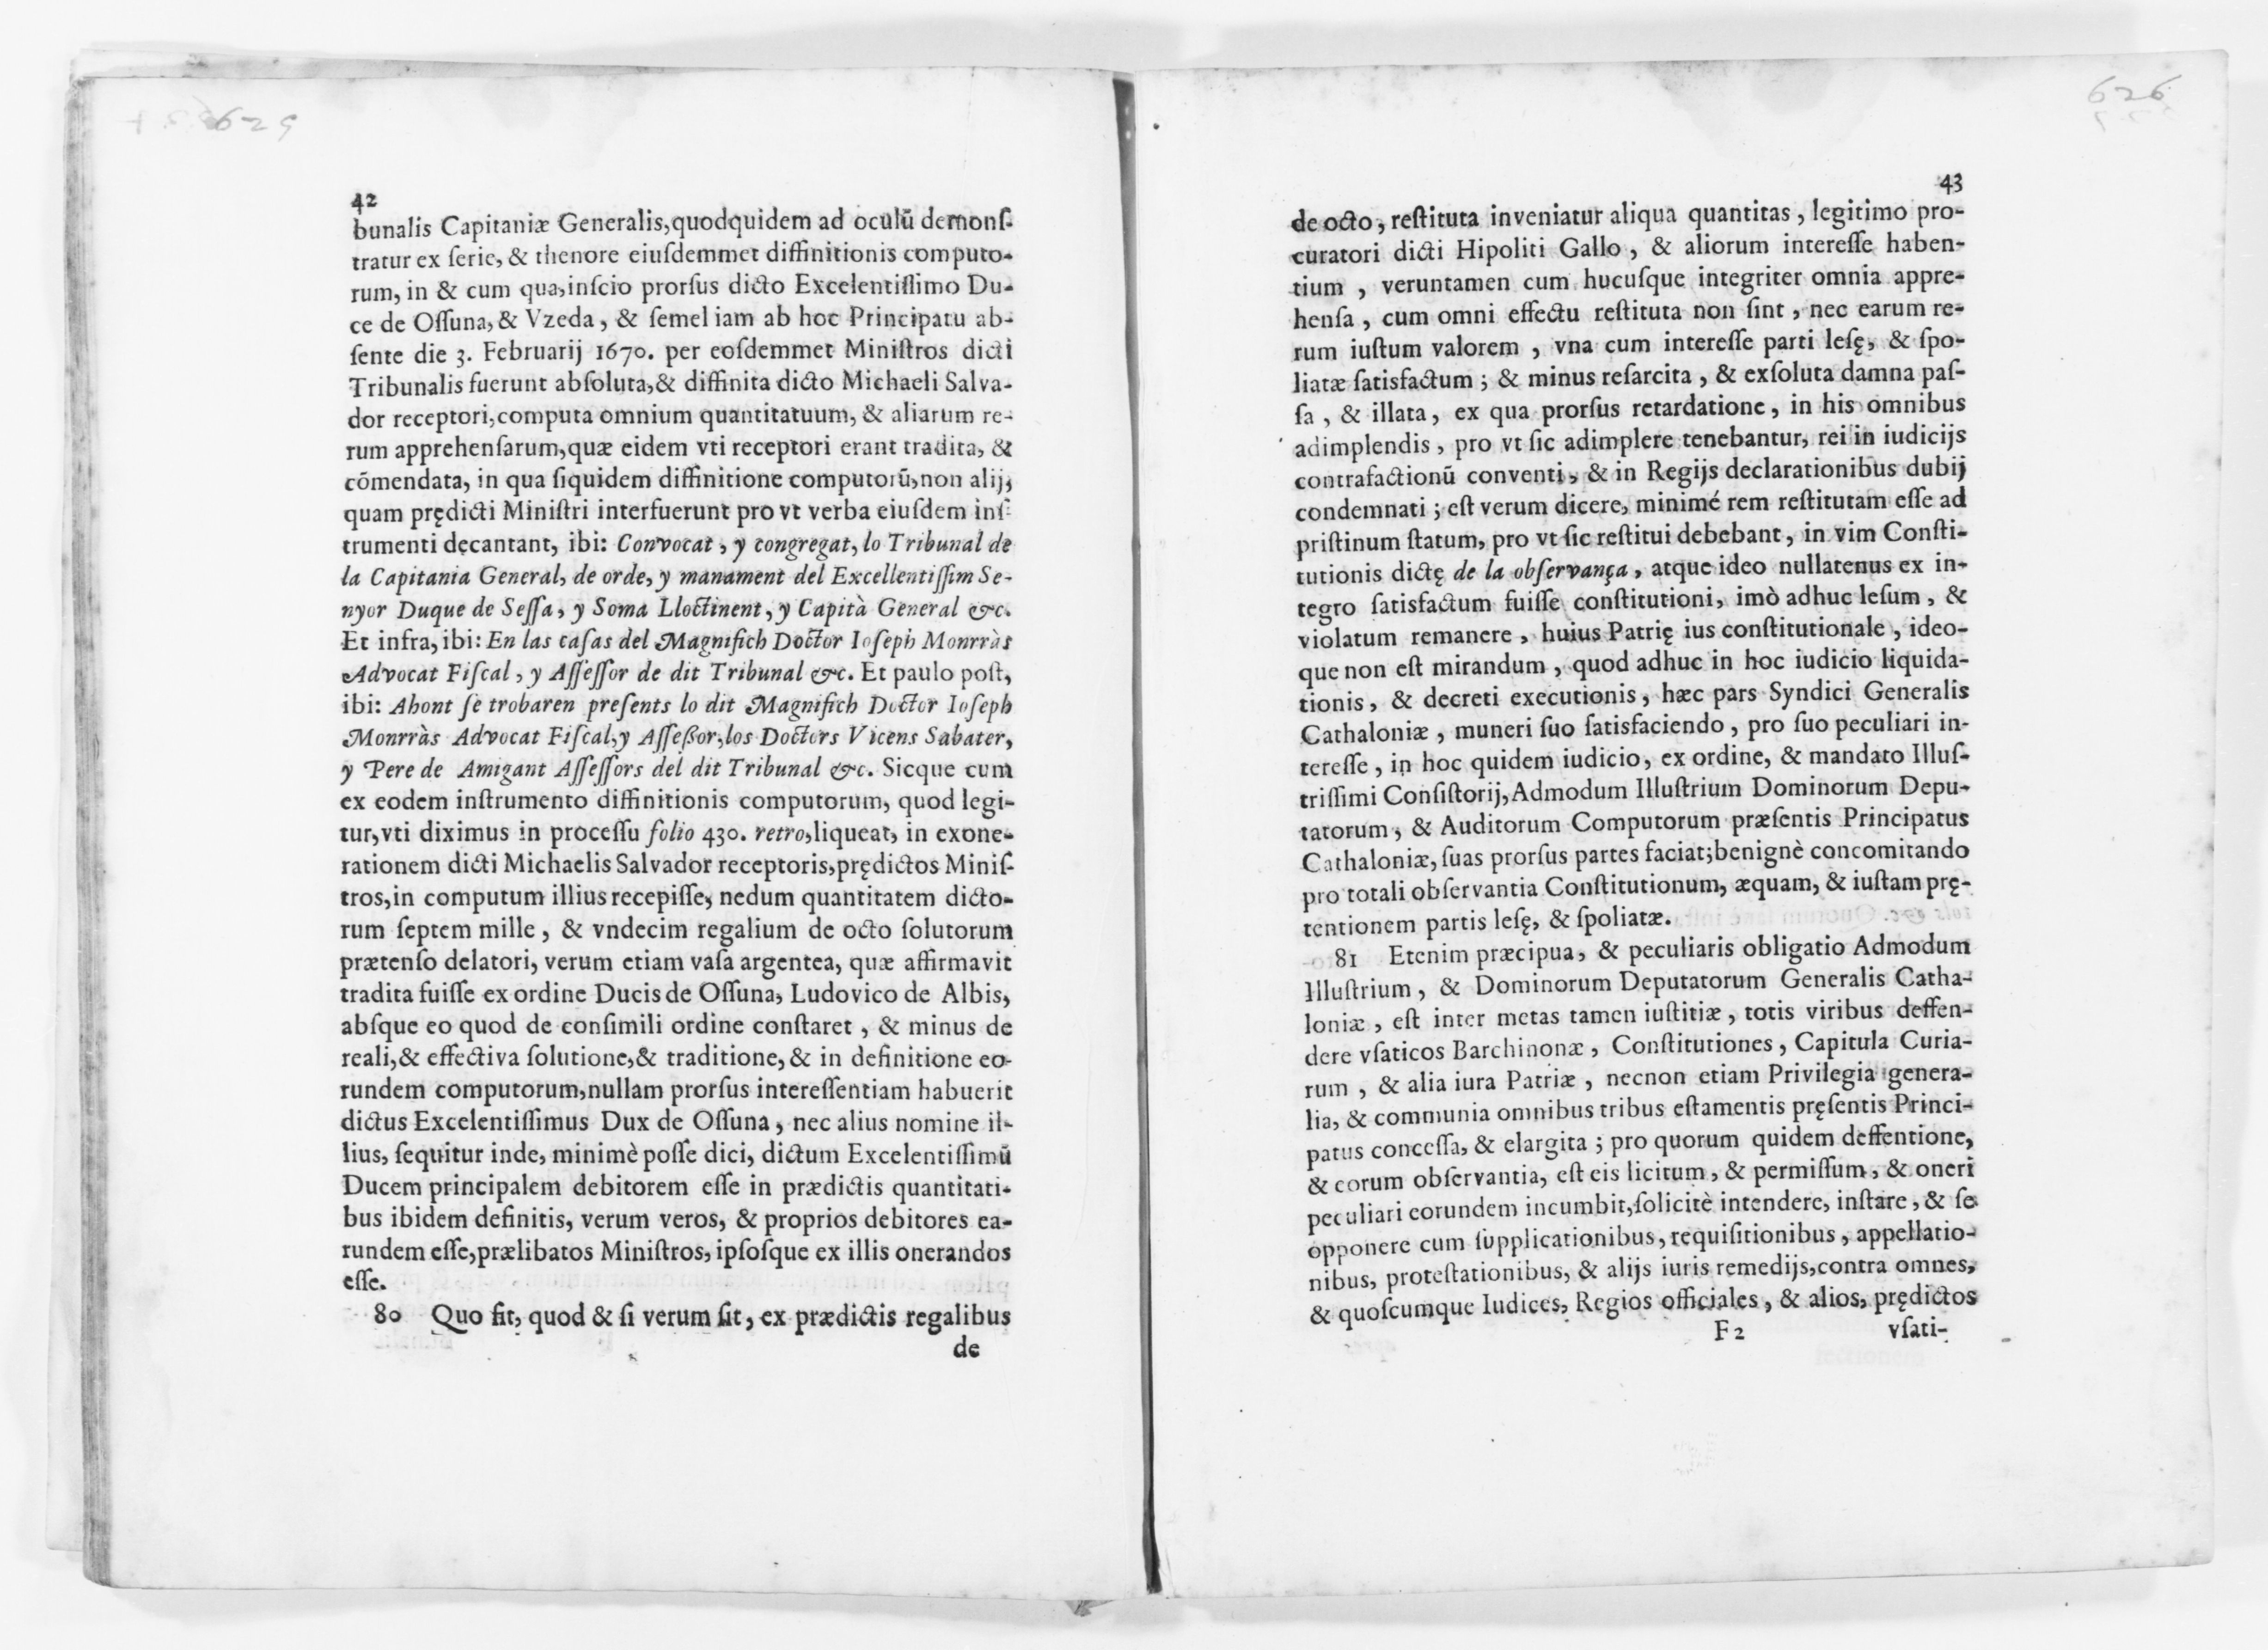 625
42
bunalis Capitaniæ Generalis,quodquidem ad oculũ demonſ-
tratur ex ſerie, & thenore eiuſdemmet diffinitionis computo-
rum, in & cum qua,inſcio prorſus dicto Excelentiſſimo Du-
ce de Oſſuna, & Vzeda, & ſemel iam ab hoc Principatu ab-
ſente die 3. Februarij 1670. per eoſdemmet Miniſtros dicti
Tribunalis fuerunt abſoluta,& diffinita dicto Michaeli Salva-
dor receptori,computa omnium quantitatuum, & aliarum re-
rum apprehenſarum,quæ eidem vti receptori erant tradita, &
cõmendata, in qua ſiquidem diffinitione computorũ,non alij,
quam prędicti Miniſtri interfuerunt pro vt verba eiuſdem inſ-
trumenti decantant, ibi: Convocat, y congregat, lo Tribunal de
la Capitania General, de orde, y manament del Excellentiſſim Se-
nyor Duque de Seſſa, y Soma Lloctinent, y Capità General &c.
Et infra, ibi: En las caſas del Magnifich Doctor Ioſeph Monrràs
Advocat Fiſcal, y Aſſeſſor de dit Tribunal &c. Et paulo poſt,
ibi: Ahont ſe trobaren preſents lo dit Magnifich Doctor Ioſeph
Monrràs Advocat Fiſcal,y Aſſeßor,los Doctors Vicens Sabater,
y Pere de Amigant Aſſeſſors del dit Tribunal &c. Sicque cum
ex eodem inſtrumento diffinitionis computorum, quod legi-
tur,vti diximus in proceſſu folio 430. retro,liqueat, in exone-
rationem dicti Michaelis Salvador receptoris,prędictos Miniſ-
tros,in computum illius recepiſſe, nedum quantitatem dicto-
rum ſeptem mille, & vndecim regalium de octo ſolutorum
prætenſo delatori, verum etiam vaſa argentea, quæ affirmavit
tradita fuiſſe ex ordine Ducis de Oſſuna, Ludovico de Albis,
abſque eo quod de conſimili ordine conſtaret, & minus de
reali,& effectiva ſolutione,& traditione, & in definitione eo-
rundem computorum,nullam prorſus intereſſentiam habuerit
dictus Excelentiſſimus Dux de Oſſuna, nec alius nomine il-
lius, ſequitur inde, minimè poſſe dici, dictum Excelentiſſimũ
Ducem principalem debitorem eſſe in prædictis quantitati-
bus ibidem definitis, verum veros, & proprios debitores ea-
rundem eſſe,prælibatos Miniſtros, ipſoſque ex illis onerandos
eſſe.
80 Quo fit, quod & ſi verum ſit, ex prædictis regalibus
de
626
43
de octo, reſtituta inveniatur aliqua quantitas, legitimo pro-
curatori dicti Hipoliti Gallo, & aliorum intereſſe haben-
tium, veruntamen cum hucuſque integriter omnia appre-
henſa, cum omni effectu reſtituta non ſint, nec earum re-
rum iuſtum valorem, vna cum intereſſe parti leſę, & ſpo-
liatæ ſatisfactum; & minus reſarcita, & exſoluta damna paſ-
ſa, & illata, ex qua prorſus retardatione, in his omnibus
adimplendis, pro vt ſic adimplere tenebantur, rei in iudicijs
contrafactionũ conventi, & in Regijs declarationibus dubij
condemnati; eſt verum dicere, minimé rem reſtitutam eſſe ad
priſtinum ſtatum, pro vt ſic reſtitui debebant, in vim Conſti-
tutionis dictę de la obſervança, atque ideo nullatenus ex in-
tegro ſatisfactum fuiſſe conſtitutioni, imò adhuc leſum, &
violatum remanere, huius Patrię ius conſtitutionale, ideo-
que non eſt mirandum, quod adhuc in hoc iudicio liquida-
tionis, & decreti executionis, hæc pars Syndici Generalis
Cathaloniæ, muneri ſuo ſatisfaciendo, pro ſuo peculiari in-
tereſſe, in hoc quidem iudicio, ex ordine, & mandato Illuſ-
triſſimi Conſiſtorij,Admodum Illuſtrium Dominorum Depu-
tatorum, & Auditorum Computorum præſentis Principatus
Cathaloniæ, ſuas prorſus partes faciat;benignè concomitando
pro totali obſervantia Conſtitutionum, æquam, & iuſtam prę-
tentionem partis leſę, & ſpoliatæ.
81 Etenim præcipua, & peculiaris obligatio Admodum
Illuſtrium, & Dominorum Deputatorum Generalis Catha-
loniæ, eſt inter metas tamen iuſtitiæ, totis viribus deffen-
dere vſaticos Barchinonæ, Conſtitutiones, Capitula Curia-
rum, & alia iura Patriæ, necnon etiam Privilegia genera-
lia, & communia omnibus tribus eſtamentis pręſentis Princi-
patus conceſſa, & elargita; pro quorum quidem deffentione,
& eorum obſervantia, eſt eis licitum, & permiſſum, & oneri
peculiari eorundem incumbit,ſolicitè intendere, inſtare, & ſe
opponere cum ſupplicationibus, requiſitionibus, appellatio-
nibus, proteſtationibus, & alijs iuris remedijs,contra omnes,
& quoſcumque Iudices, Regios officiales, & alios, prędictos
F2 vſati-